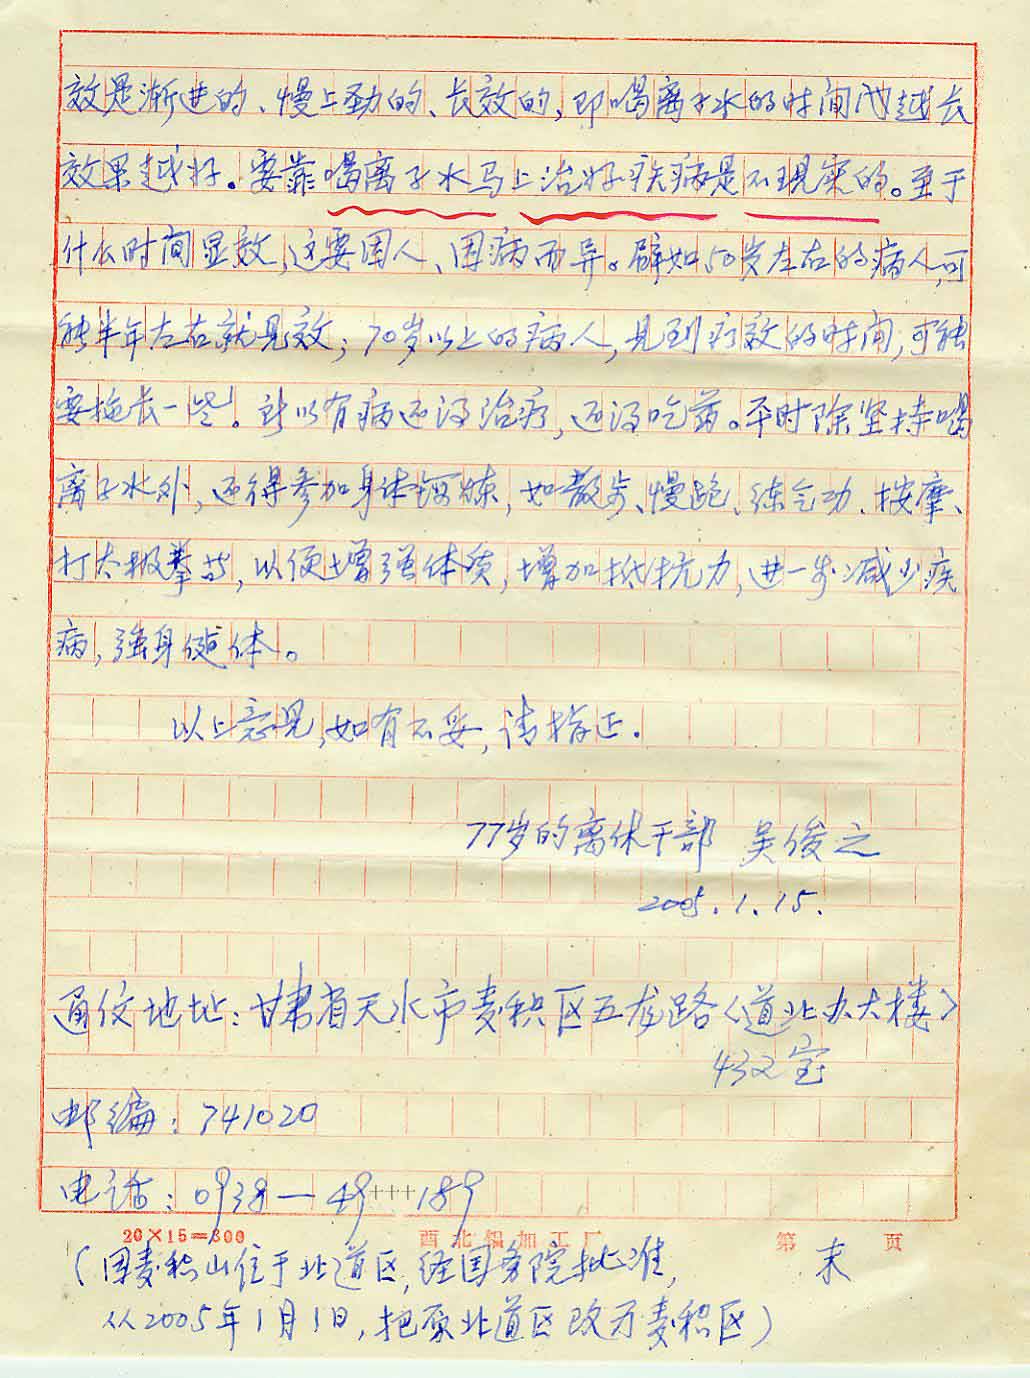 效是渐进的、慢上劲的、长效的,即喝离子水的时间越长
效果越好。要靠喝离子水马上治好疾病是不现实的。至于
什么时间显效,这要因人、因病而异。譬如50岁左右的病人,可
能半年左右就见效;70岁以上的病人,见到疗效的时间,可能
要拖长一些。所以有病还得治疗,还得吃药。平时除坚持喝
离子水外,还得参加身体锻炼,如散步、慢跑、练气功、按摩、
打太极拳等,以便增强体质,增加抵抗力,进一步减少疾
病,强身健体。
以上意见,如有不妥,请指正.
77岁的离休干部 吴俊之
2005.1.15.
通仪地址:甘肃省天水市麦积区五龙路〈道北办大楼〉
432室
邮编:741020
电话:0938—49+++189
20×15=300 西北铝加工厂 第 末 页
(因麦积山位于北道区,经国务院批准,
从2005年1月1日,把原北道区改为麦积区)